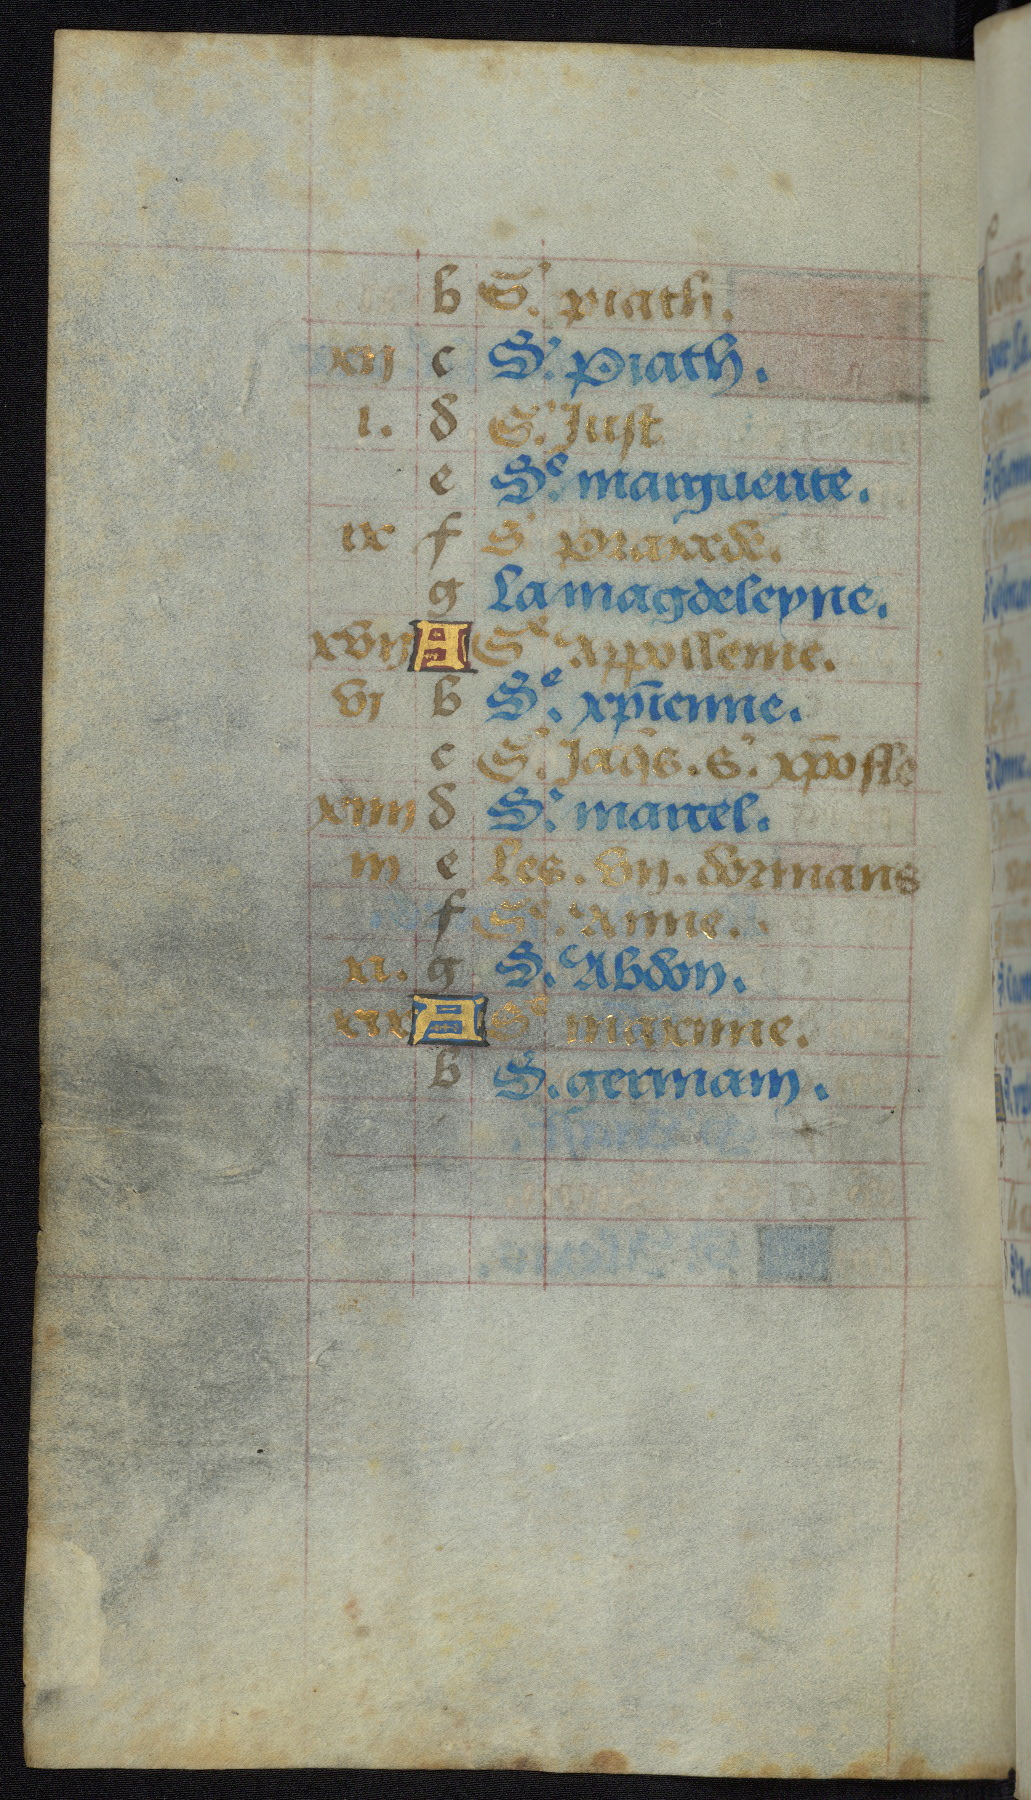 b S. piath.
xii c S. piath.
i. d S. Just
e Sᵉ. marguerite.
ix f S praxede.
g La magdeleyne.
xvii A Sᵉ Appollenie.
vi b Sᵉ. xp̄ienne.
c S. Jaq̄s. s. xp̄ofle
xiiii d S. marcel.
iii e Les. vii. dormans
f Sᵉ. Anne.
xi. g S. Abdon.
xix A Sᵉ maxime.
b S. germain.